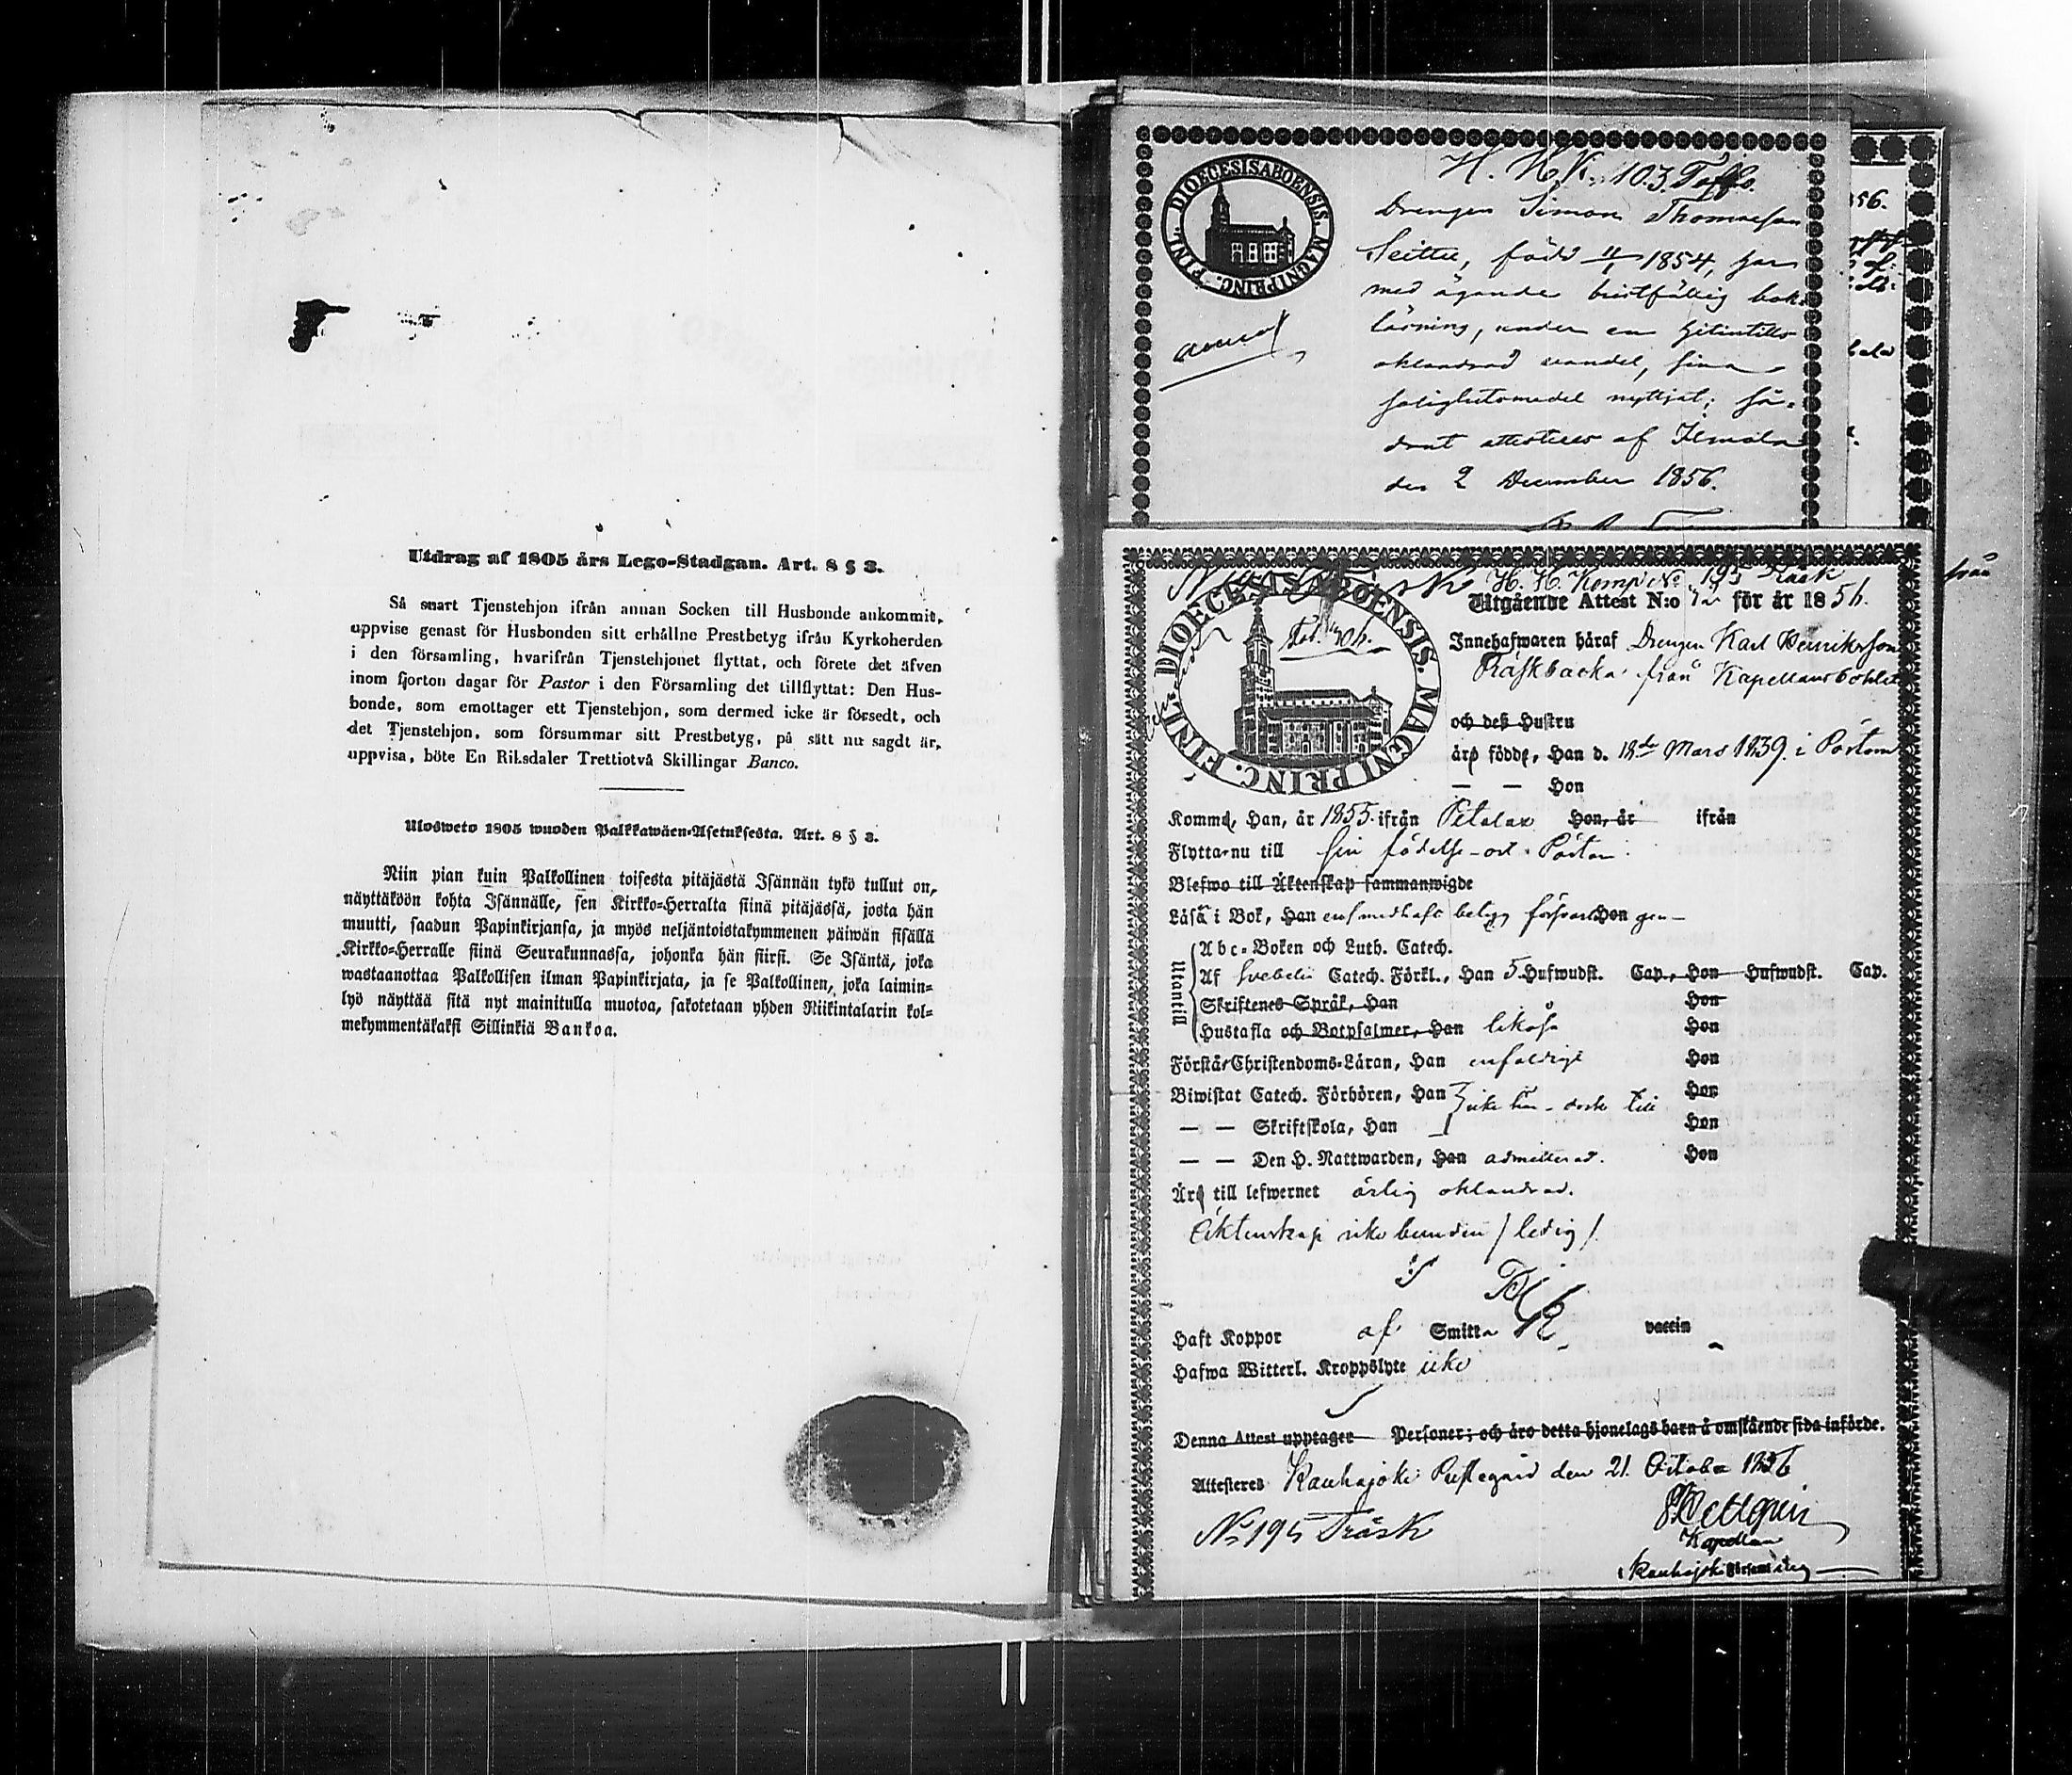 Utdrag af 1805 års Lego-Stadgan. Art. 8 § 3.
Så snart Tjenstehjon ifrån annan Socken till Husbonde ankommit,
uppvise genast för Husbonden sitt erhållne Prestbetyg ifrån Kyrkoherden
i den församling, hvarifrån Tjenstehjonet flyttat, och förete det äfven
inom fjorton dagar för Pastor i den Församling det tillflyttat: Den Hus-
bonde, som emottager ett Tjenstehjon, som dermed icke är försedt, och
det Tjenstehjon, som försummar sitt Prestbetyg, på sätt nu sagdt är,
uppvisa, böte En Riksdaler Trettiotvå Skillingar Banco.
Ulosweto 1805 wuoden Palkkawäen-Asetuksesta. Art. 8 § 3.
Niin pian kuin Palkollinen toisesta pitäjästä Isännän tykö tullut on,
näyttäköön kohta Isännälle, sen Kirkko-Herralta siinä pitäjässä, josta hän
muutti, saadun Papinkirjansa, ja myös neljäntoistakymmenen päiwän sisällä
Kirkko-Herralle siinä Seurakunnassa, johonka hän siirsi. Se Isäntä, joka
wastaanottaa Palkollisen ilman Papinkirjata, ja se Palkollinen, joka laimin-
lyö näyttää sitä nyt mainitulla muotoa, sakotetaan yhden Riikintalarin kol-
mekymmentäkaksi Sillinkiä Bankoa.
DIOECESIS ABOENSIS. MAGNI PRINC. FINL.
H. H. K. 103 Töffs.
Drengen Simon Thomasson
Seittu, född 11/1 1854, har
med ägande bristfällig bok-
läsning, under en hitintills
oklandrad vandel, sina
salighetsmedel nyttjat; så-
dant attesteras af Ilmola
den 2 December 1856.
356.
från
DIOECESIS ABOENSIS. MAGNI PRINC. FINL.
H. H. Komp No 195 Träsk
Utgående Attest N:o 72 för år 1856.
Innehafwaren häraf Drengen Karl Henriksson
Träskbacka från Kapellansbohlet
och deß Hustru
äro födde, Han d. 18de Mars 1839. i Pörtom
— — Hon
Komma, Han, år 1855. ifrån Petalax Hon, år ifrån
Flytta nu till sin födelse-ort Pörtom.
Blefwo till Äktenskap sammanwigde
Läsa i Bok, Han Hon
Utantill
Abc-Boken och Luth. Catech.
Af Svebelii Catech. Förkl., Han 5 Hufwudst. Cap., Hon Hufwudst. Cap.
Skriftenes Språk, Han Hon
Hustafla och Botpsalmer, Han likaså Hon
Förstår Christendoms-Läran, Han enfaldigt Hon
Biwistat Catech. Förhören, Han icke här Hon
— — Skriftskola, Han Hon
— — Den H. Nattwarden, Han admitterad. Hon
Äro till lefwernet ärlig oklandrad.
Äktenskap icke bunden / ledig /.
Haft Koppor af Smitta vaccin
Hafwa Witterl. Kroppslyte icke
Denna Attest upptager Personer; och äro detta hjonelags barn å omstående sida införde.
Attesteras Kauhajoki Prestegård den 21. October 1856
No 195 Träsk
Kapellan
i Kauhajoki Församling